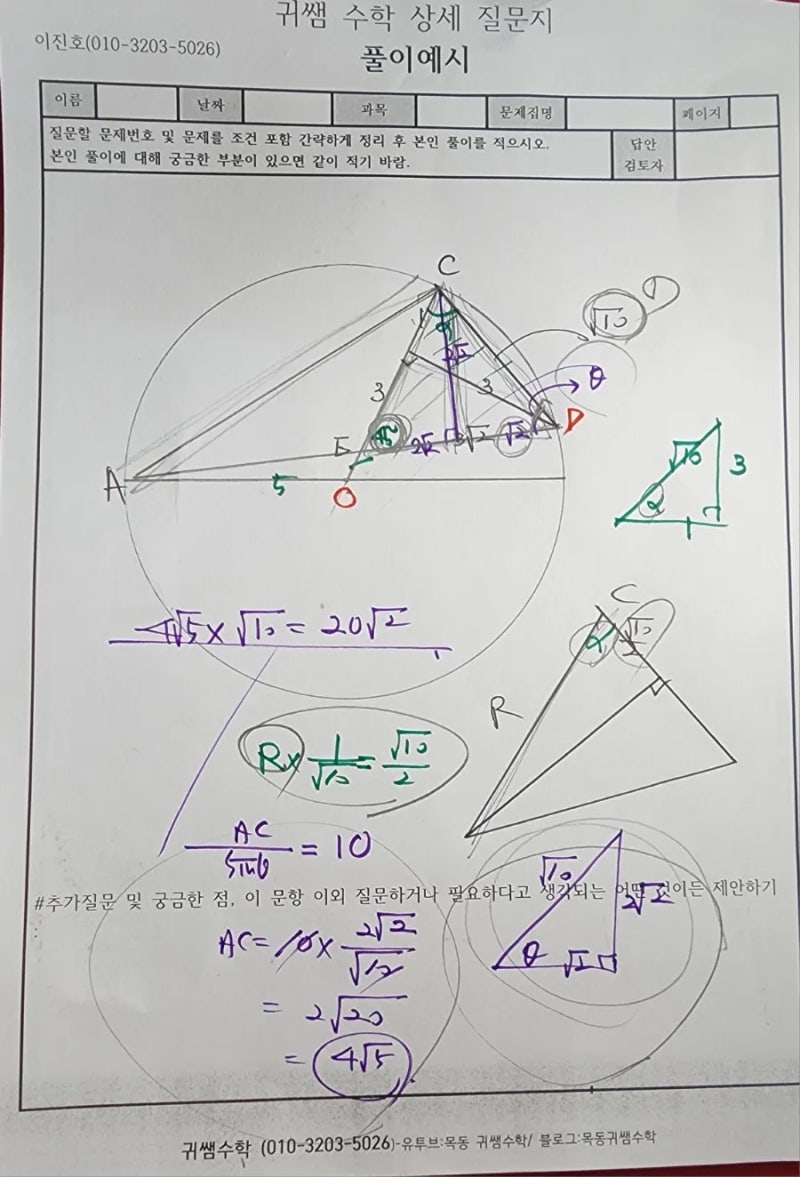 귀쌤 수학 상세 질문지
이진호(010-3203-5026)
풀이예시
이름 날짜 과목 문제집명 페이지
질문할 문제번호 및 문제를 조건 포함 간략하게 정리 후 본인 풀이를 적으시오.
본인 풀이에 대해 궁금한 부분이 있으면 같이 적기 바람.
답안
검토자
C
√10 ①
1 α
2√2
3 3 θ
E 45° 2√2 3√2 √2 D
A 5 O
√10 3
α 1
4√5 × √10 = 20√2
C
α √10/2
R
R × 1/√10 = √10/2
AC/sinθ = 10
√10 2√2
θ √2
#추가질문 및 궁금한 점, 이 문항 이외 질문하거나 필요하다고 생각되는 어떤 것이든 제안하기
AC = 10 × 2√2/√10
= 2√20
= 4√5
귀쌤수학 (010-3203-5026)-유투브:목동 귀쌤수학/ 블로그:목동귀쌤수학